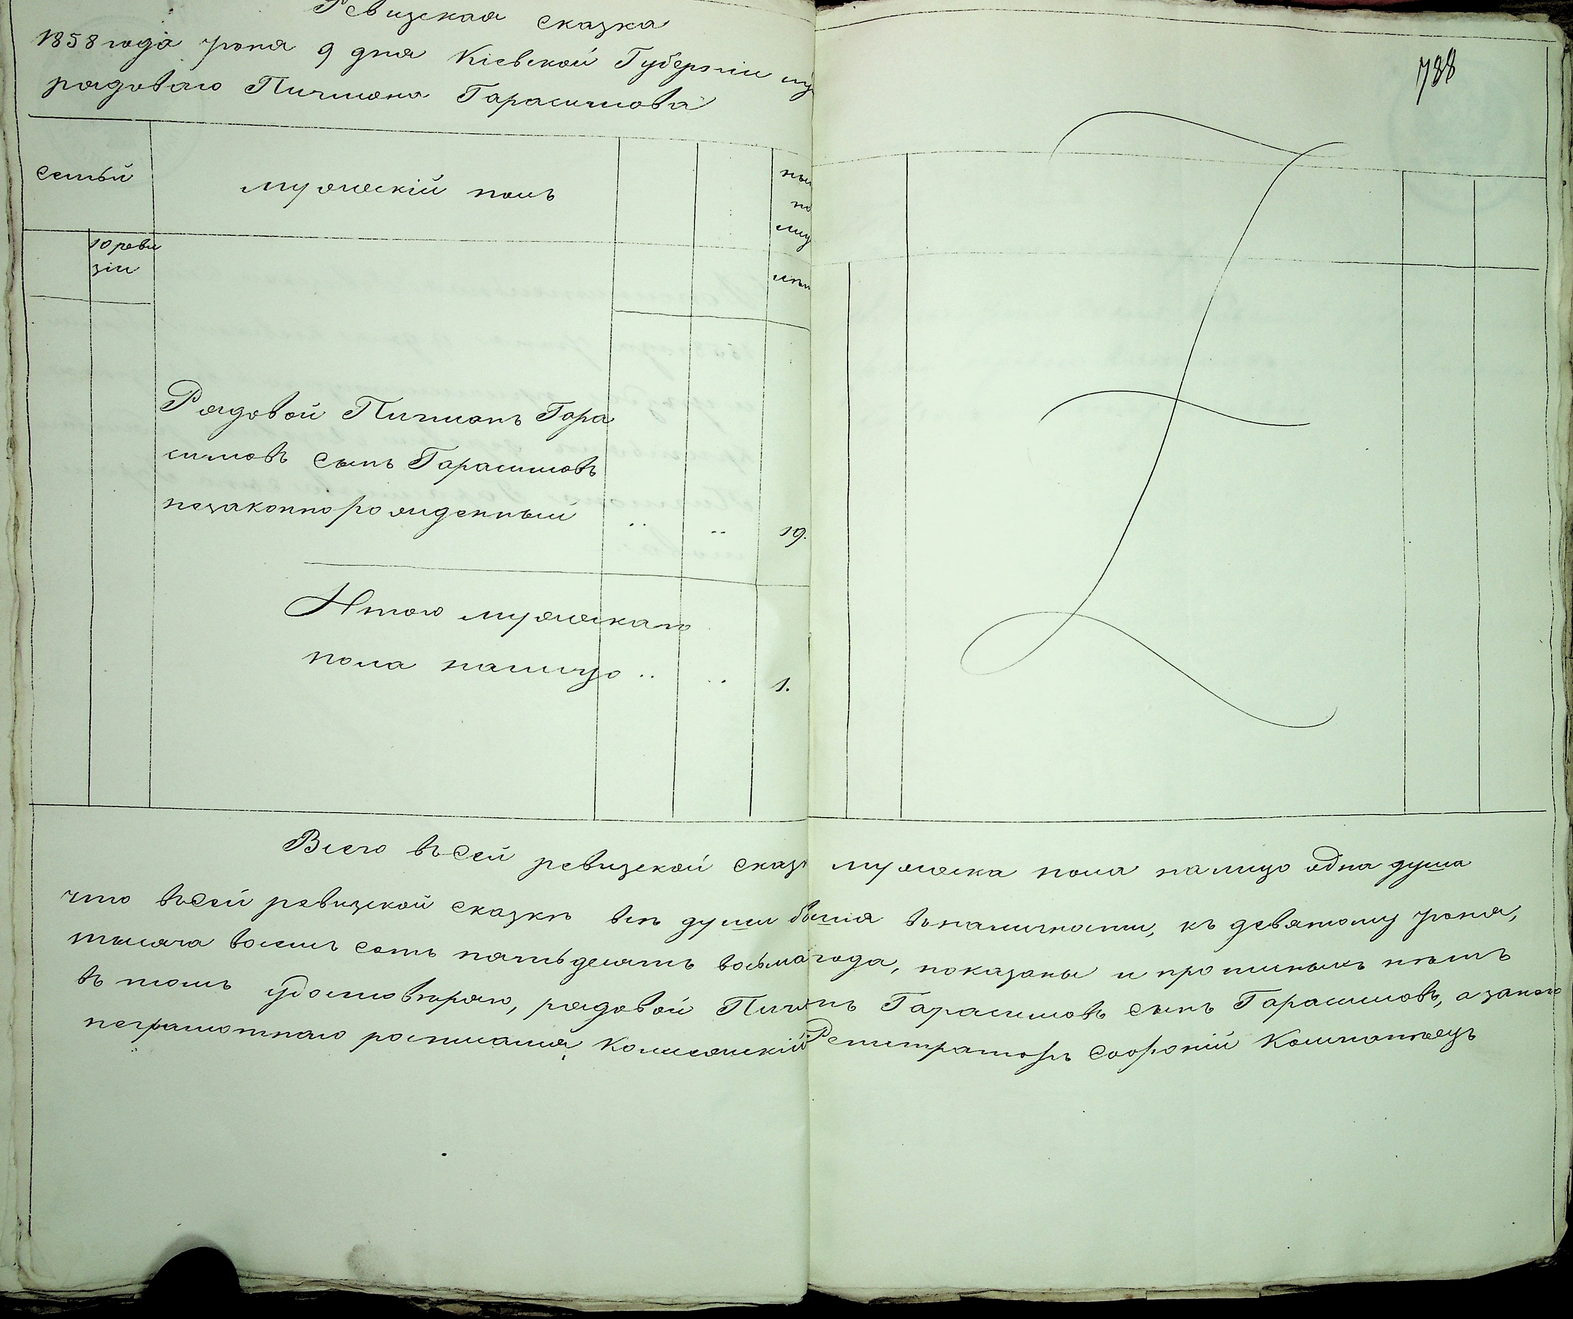 Ревизская сказка
1858 года Іюня 9 дня Кіевской Губерніи
рядоваго Пимона Гарасимова
788
семьи
мужескій полъ
10 реви
зіи
Рядовой Пимонъ Гара
симовъ сынъ Гарасимовъ
незаконнорожденный .. .. 19.
Итого мужескаго
пола налицо .. .. 1.
Всего въ сей ревизской сказ мужеска пола на лицо одна душа
что въ сей ревизской сказкѣ всѣ души бывшія въ наличности, къ девятому Іюня,
тысяча восемь сотъ пятьдесятъ восьма года, показаны и прописныхъ нѣтъ
въ томъ удостовѣряю, рядовой Пимонъ Гарасимовъ сынъ Гарасимовъ, а за него
неграмотнаго росписался, Колежскій Регистраторъ Софроній